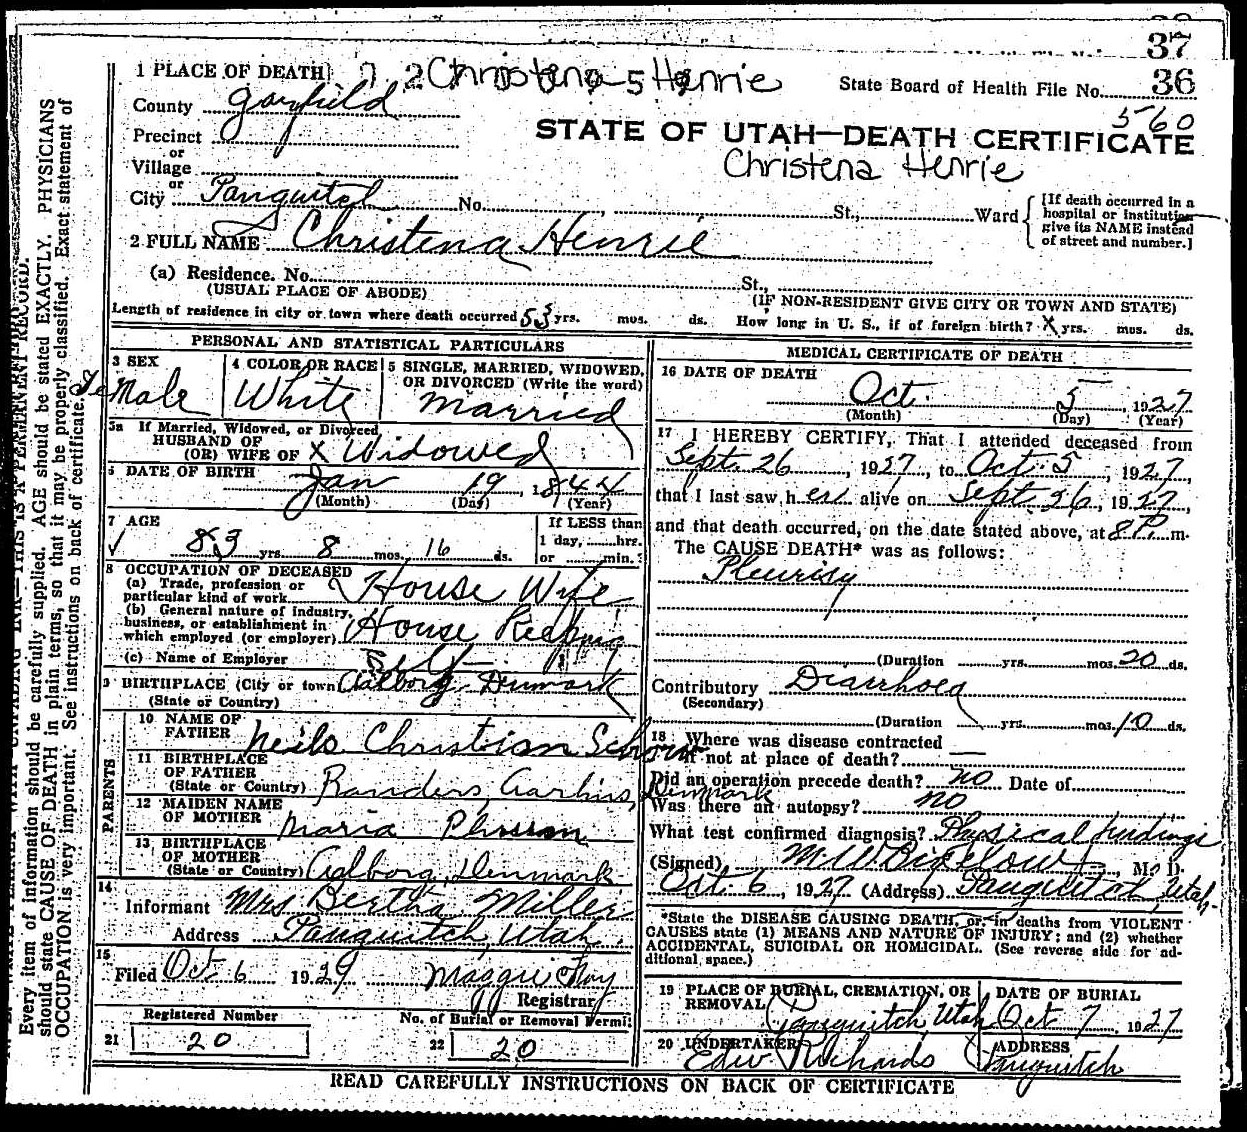 37
1 PLACE OF DEATH 7. 2 Christena 5 Henrie State Board of Health File No. 36
County Garfield 560
Precinct
STATE OF UTAH—DEATH CERTIFICATE
or
Village
Christena Henrie
or
City Panguitch No. St., Ward
[If death occurred in a hospital or institution give its NAME instead of street and number.]
2 FULL NAME Christena Henrie
(a) Residence. No. St.,
(USUAL PLACE OF ABODE) (IF NON-RESIDENT GIVE CITY OR TOWN AND STATE)
Length of residence in city or town where death occurred 53 yrs. mos. ds. How long in U. S., if of foreign birth? X yrs. mos. ds.
PERSONAL AND STATISTICAL PARTICULARS
3 SEX Fe Male
4 COLOR OR RACE White
5 SINGLE, MARRIED, WIDOWED, OR DIVORCED (Write the word) Married
5a If Married, Widowed, or Divorced
HUSBAND OF
(OR) WIFE OF X Widowed
6 DATE OF BIRTH Jan 19, 1844
(Month) (Day) (Year)
7 AGE 83 yrs. 8 mos. 16 ds.
If LESS than 1 day, hrs. or min.
8 OCCUPATION OF DECEASED
(a) Trade, profession or particular kind of work House Wife
(b) General nature of industry, business, or establishment in which employed (or employer) House Keeping
(c) Name of Employer Self
9 BIRTHPLACE (City or town) Aalborg, Denmark
(State or Country)
PARENTS
10 NAME OF FATHER Neils Christian Schow
11 BIRTHPLACE OF FATHER (State or Country) Randers, Aarhus, Denmark
12 MAIDEN NAME OF MOTHER Maria
13 BIRTHPLACE OF MOTHER (State or Country) Aalborg, Denmark
14 Informant Mrs Bertha Miller
Address Panguitch, Utah.
15 Filed Oct 6 1929 Maggie
Registrar
Registered Number
21 20
No. of Burial or Removal Permit
22 20
MEDICAL CERTIFICATE OF DEATH
16 DATE OF DEATH
Oct. 5, 1927
(Month) (Day) (Year)
17 I HEREBY CERTIFY, That I attended deceased from
Sept. 26, 1927, to Oct. 5, 1927,
that I last saw her alive on Sept. 26, 1927,
and that death occurred, on the date stated above, at 8 P. m.
The CAUSE DEATH* was as follows:
Pleurisy
(Duration yrs. mos. 20 ds.
Contributory Diarrhoea
(Secondary)
(Duration yrs. mos. 10 ds.
18 Where was disease contracted
if not at place of death? —
Did an operation precede death? no Date of
Was there an autopsy? no
What test confirmed diagnosis? Physical findings
(Signed) M. W. Bigelow, M. D.
Oct. 6, 1927 (Address) Panguitch, Utah.
*State the DISEASE CAUSING DEATH, or in deaths from VIOLENT
CAUSES state (1) MEANS AND NATURE OF INJURY; and (2) whether
ACCIDENTAL, SUICIDAL OR HOMICIDAL. (See reverse side for ad-
ditional space.)
19 PLACE OF BURIAL, CREMATION, OR REMOVAL Panguitch, Utah
DATE OF BURIAL Oct 7, 1927
20 UNDERTAKER Edw. Richards
ADDRESS Panguitch
READ CAREFULLY INSTRUCTIONS ON BACK OF CERTIFICATE
Every item of information should be carefully supplied. AGE should be stated EXACTLY. PHYSICIANS
should state CAUSE OF DEATH in plain terms, so that it may be properly classified. Exact statement of
OCCUPATION is very important. See instructions on back of certificate.